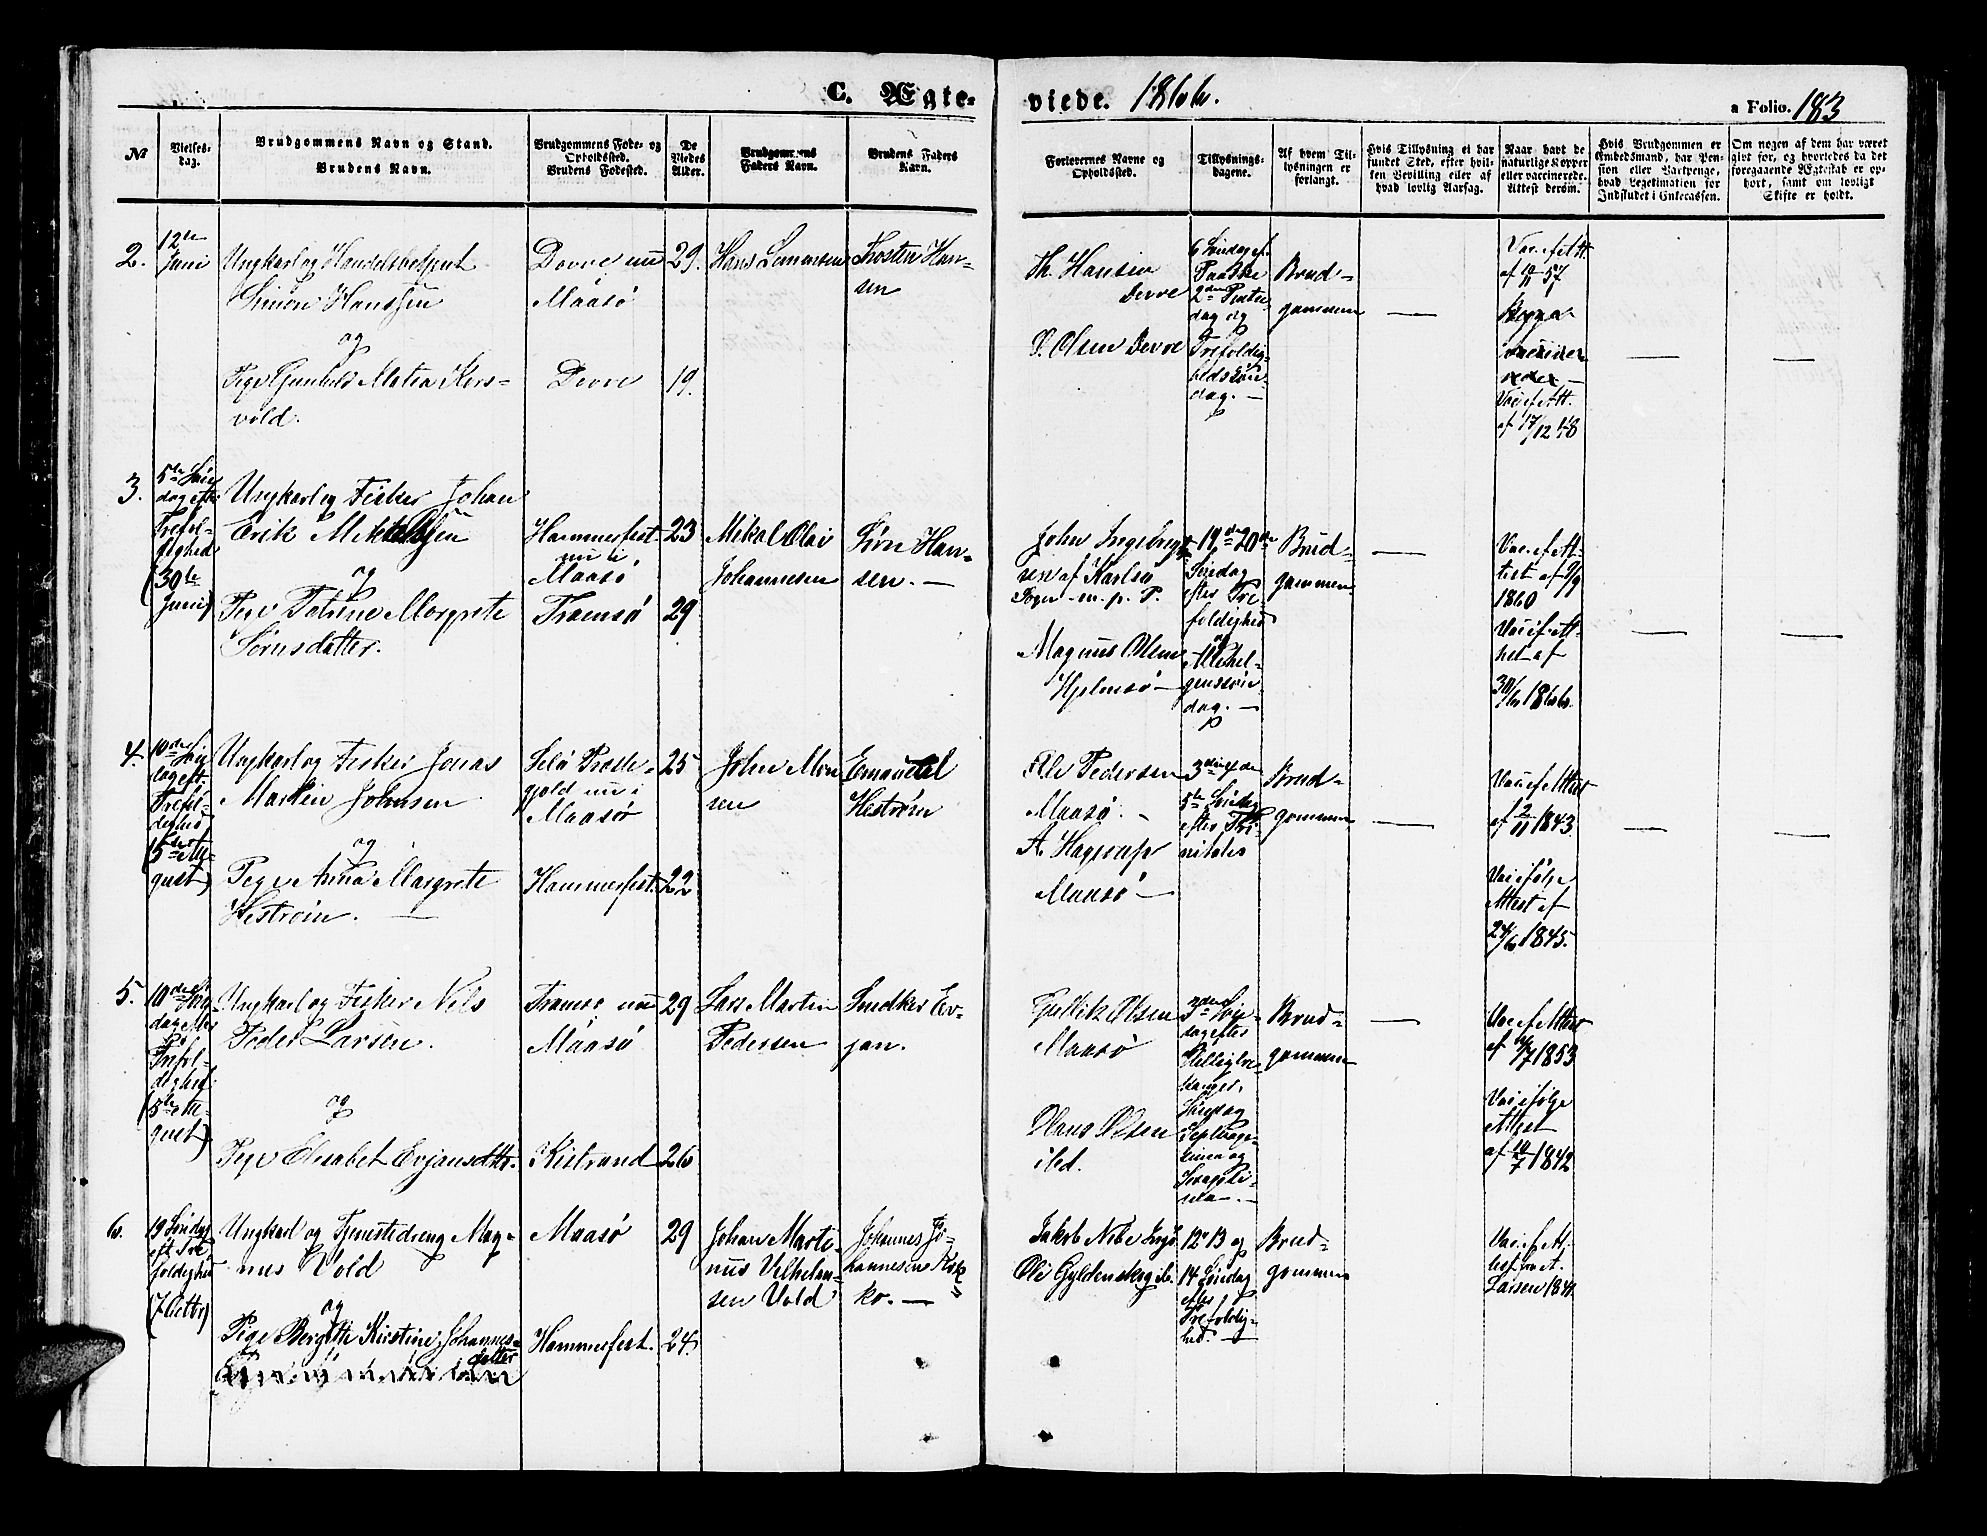 C. Ægte-
viede. 1866.
a Folio. 183
№
Vielses-
dag.
Brudgommens Navn og Stand.
Brudens Navn.
Brudgommens Føde- og
Opholdssted.
Brudens Fødested.
De
Viedes
Alder.
Brudgommens
Faders Navn.
Brudens Faders
Navn.
Forlovernes Navne og
Opholdssted.
Tillysnings-
dagene.
Af hvem Til-
lysningen er
forlangt.
Hvis Tillysning ei har
fundet Sted, efter hvil-
ken Bevilling eller af
hvad lovlig Aarsag.
Naar havt de
naturlige Kopper
eller vaccinerede.
Attest derom.
Hvis Brudgommen er
Embedsmand, har Pen-
sion eller Vartpenge,
hvad Legitimation for
Indskudet i Enkecassen.
Om nogen af dem har været
gift før, og hvorledes da det
foregaaende Ægteskab er op-
hørt, samt om lovligt
Skifte er holdt.
2.
12te
Juni
Ungkarl og Handelsbetjent
Simon Hanssen
og
Pige Gunhild Metea Kors-
vold.
Dovre nu
Maasö
Dovre
29.
19.
Hans
Hansen
Th. Hansen
Dovre
O. Olsen Dovre
6 Søndag ef.
Paaske
2den Pintse-
dag og
Trefoldig-
heds Søn-
dag. —
Brud-
gommen
—
Vac. ef. Att.
Vac. ef. Att.
af 17/12 48
—
—
3.
5te Søn-
dag efter
Trefol-
dighed
(30te
Juni)
Ungkarl og Fisker Johan
Erik Mikkelsen
og
Pige Petrine Margrete
Sørensdatter.
Hammerfest
nu i
Maasö
Tromsö
23
29
Mikal Olai
Johannesen
Sörn Han-
sen. —
John Ingebrigt-
sen af Karlsö
Sogn m. p. P.
Magnus Olsen
Hjelmsö —
19de 20de
Søndag
efter Tre
foldighed
og
Allehel-
genssøn-
dag. —
Brud-
gommen
—
Vac. ef. At-
test af 9/9
1860
Vac. ef. At-
test af
30/6 1866.
—
—
4.
10de Søn
dag eft.
Trefol-
dighed
(5te Au-
gust)
Ungkarl og Fisker Jonas
Martin Johnsen
og
Pige Anna Margrete
Hestrøm. —
Selö Præste-
gjeld nu i
Maasö
Hammerfest.
25
22
John Mon
sen
Emanuel
Hestrøm
Ole Pedersen
Maasö. —
A. Hagerup
Maasö —
5te Søndag
efter Tri-
nitatis
Brud-
gommen
—
Vac. ef. Attest
af 12/11 1843.
Vac. ifølge
Attest af
24/6 1845.
—
—
5.
10de Søn
dag efter
Trefol-
dighed
(5te Au-
gust)
Ungkarl og Fisker Nils
Peder Larsen.
og
Pige Elisabet Evjansdttr.
Tromsö nu
Maasö
Kistrand
29
26
Lars Martin
Pedersen
Smedker Ev-
jan.
Kjellik Olsen
Maasö
Hans Olsen
ibd.
3de Søn-
dag efter
Helligtre-
konger,
Søndag
Septuage-
sima og
Sexagesi-
ma. —
Brud-
gommen
—
Vac. ef. Attest
1853
Vac. ifølge
Attest
1842
6.
19 Søndag
eft. Tre
foldighed
(7 Octbr)
Ungkarl og Tjenestedreng Mag-
nus Vold
og
Pige Bergitte Kirstine Johannes-
datter
Maasö
Hammerfest.
29
24.
Johan Marti-
nus Vilhelm-
sen Vold
Johannes Jo-
hannesens Kos
ko. —
Jakob Nibe Ingö
Ole Gyldenskog ib.
12, 13 og
14 Søndag
efter
Trefoldig-
hed. —
Brud-
gommen
Vac. ef. At-
test fra A.
Larsen 1841.